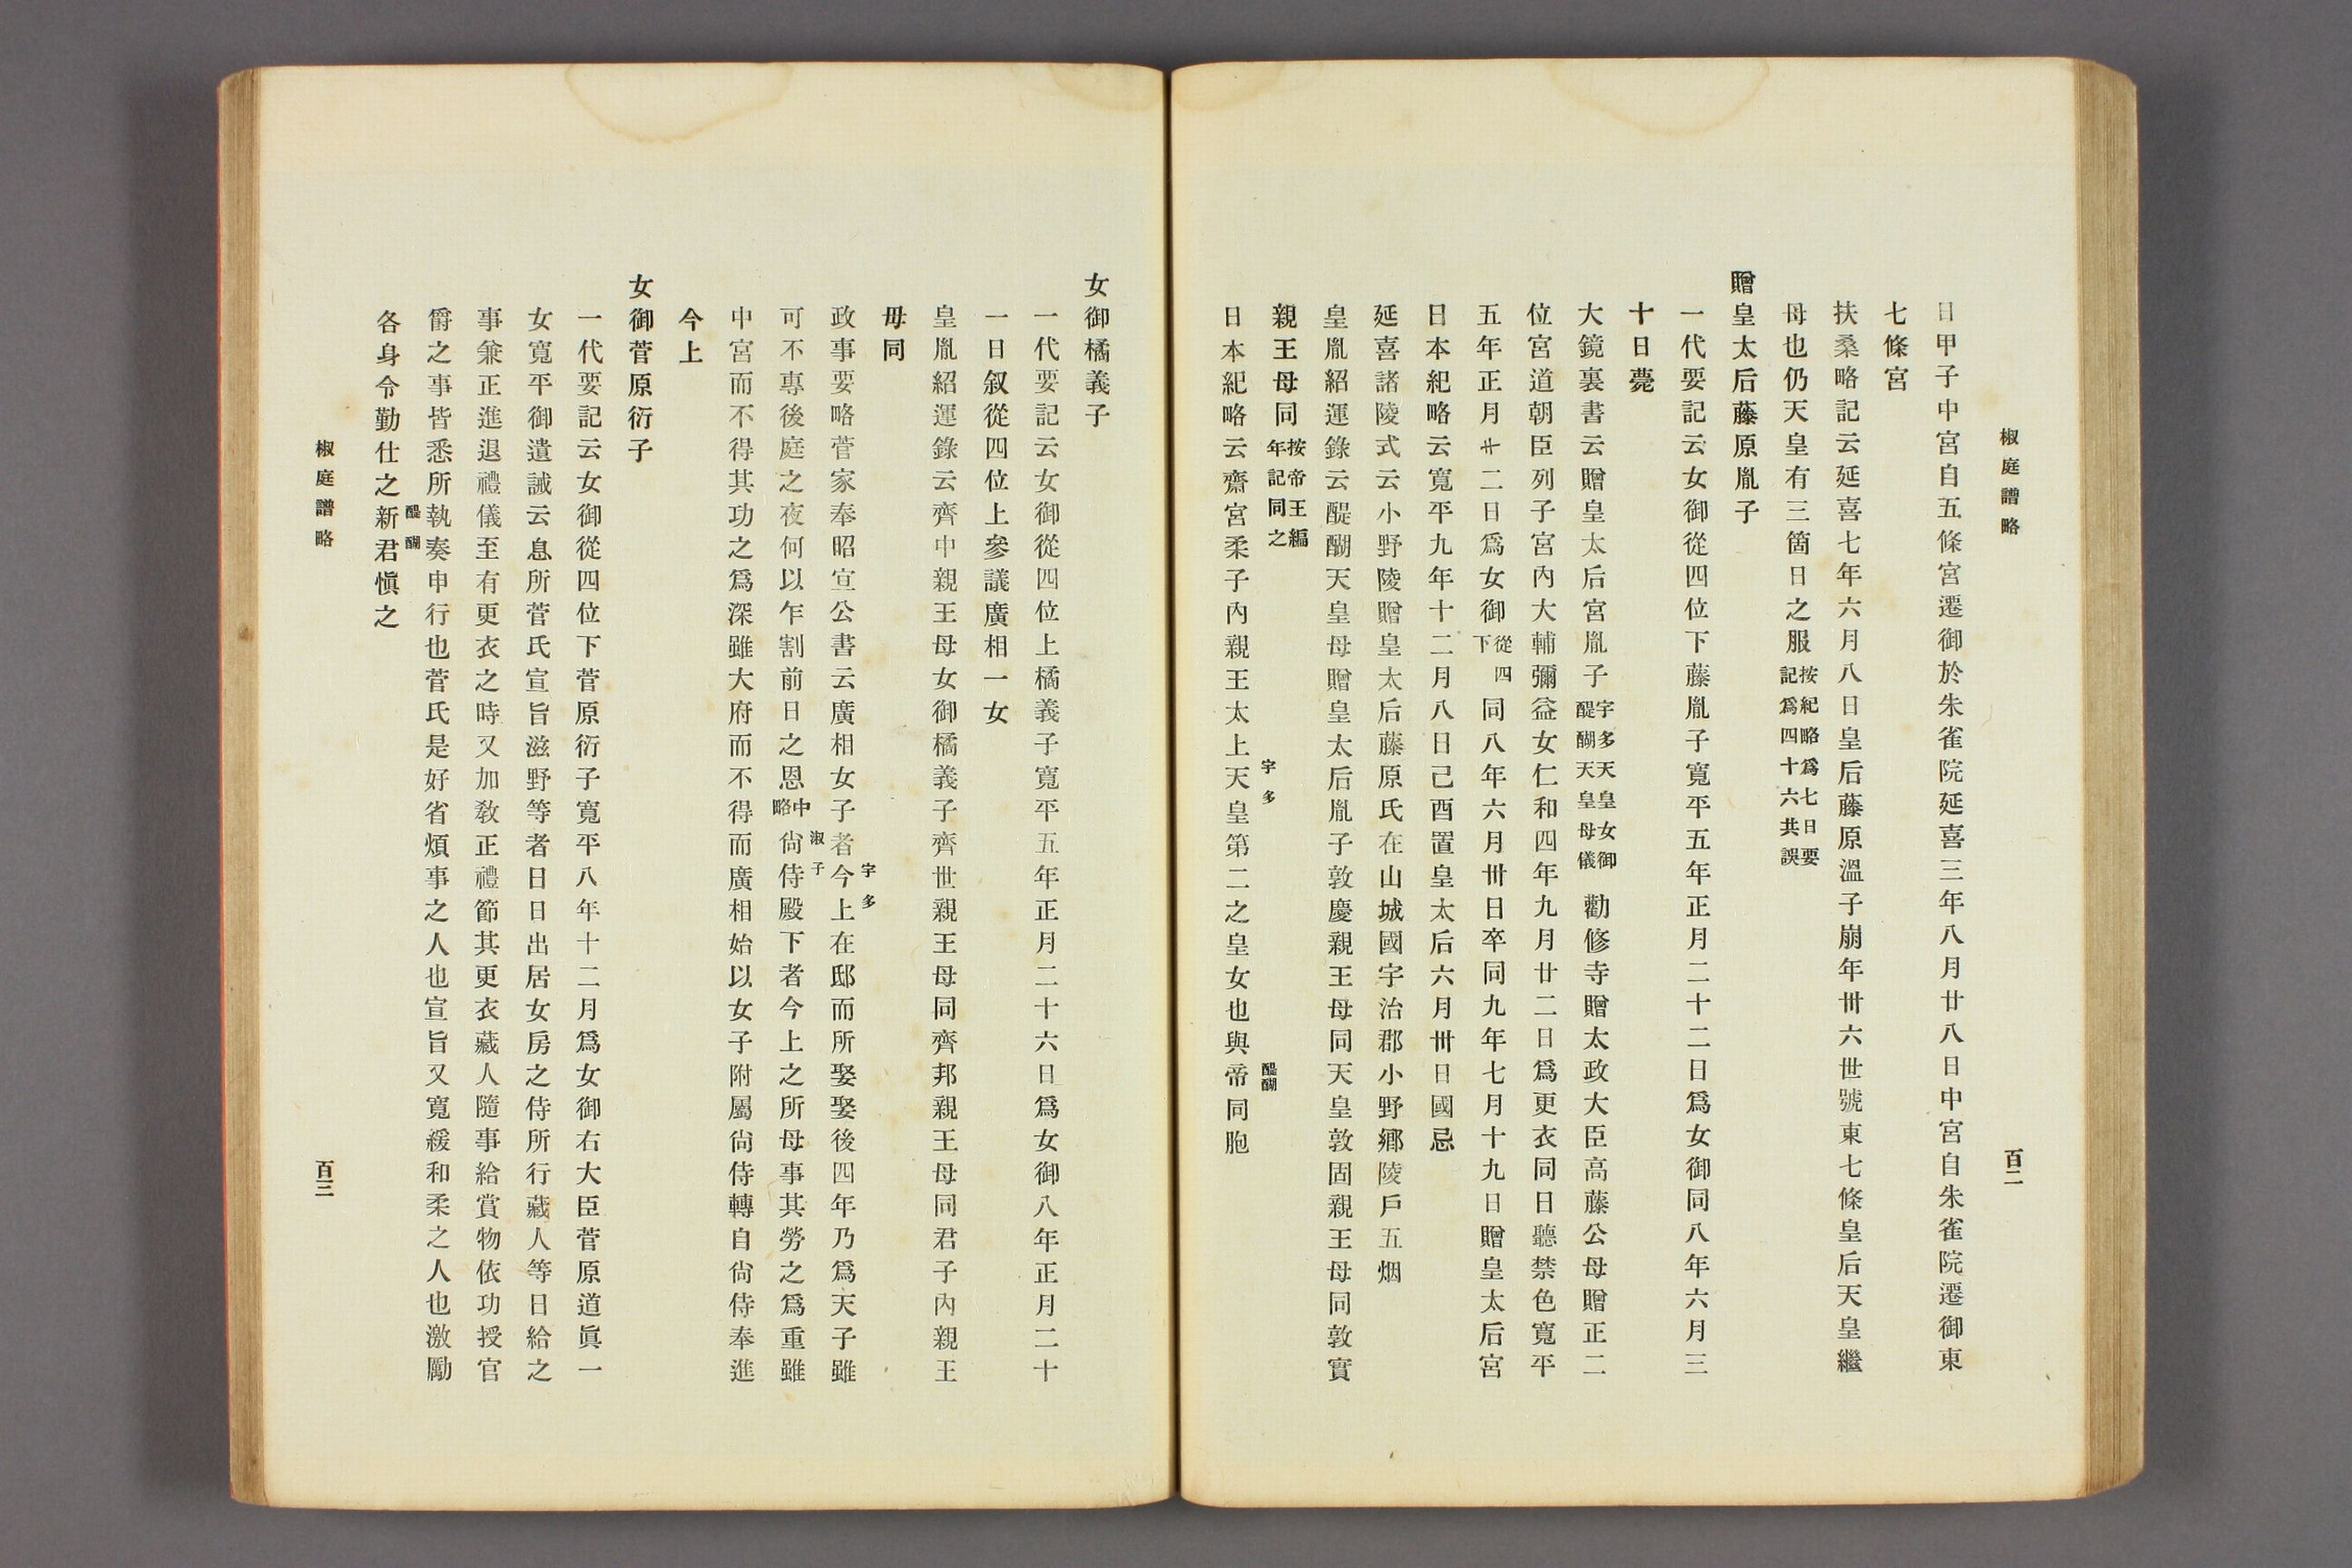 椒庭譜略
百二
日甲子中宮自五條宮遷御於朱雀院延喜三年八月廿八日中宮自朱雀院遷御東
七條宮
扶桑略記云延喜七年六月八日皇后藤原溫子崩年卅六世號東七條皇后天皇繼
母也仍天皇有三箇日之服按紀略爲七日要記爲四十六共誤
贈皇太后藤原胤子
一代要記云女御從四位下藤胤子寬平五年正月二十二日爲女御同八年六月三
十日薨
大鏡裏書云贈皇太后宮胤子宇多天皇女御醍醐天皇母儀勸修寺贈太政大臣高藤公母贈正二
位宮道朝臣列子宮內大輔彌益女仁和四年九月廿二日爲更衣同日聽禁色寬平
五年正月廿二日爲女御從四下同八年六月卅日卒同九年七月十九日贈皇太后宮
日本紀略云寬平九年十二月八日己酉置皇太后六月卅日國忌
延喜諸陵式云小野陵贈皇太后藤原氏在山城國宇治郡小野鄉陵戶五烟
皇胤紹運錄云醍醐天皇母贈皇太后胤子敦慶親王母同天皇敦固親王母同敦實
親王母同按帝王編年記同之
日本紀略云齋宮柔子內親王太上天皇宇多第二之皇女也與帝醍醐同胞
女御橘義子
一代要記云女御從四位上橘義子寬平五年正月二十六日爲女御八年正月二十
一日叙從四位上參議廣相一女
皇胤紹運錄云齊中親王母女御橘義子齊世親王母同齊邦親王母同君子內親王
母同
政事要略菅家奉昭宣公書云廣相女子者今上宇多在邸而所娶娶後四年乃爲天子雖
可不專後庭之夜何以乍割前日之恩中略尙侍淑子殿下者今上之所母事其勞之爲重雖
中宮而不得其功之爲深雖大府而不得而廣相始以女子附屬尙侍轉自尙侍奉進
今上
女御菅原衍子
一代要記云女御從四位下菅原衍子寬平八年十二月爲女御右大臣菅原道眞一
女寬平御遺誡云息所菅氏宣旨滋野等者日日出居女房之侍所行藏人等日給之
事兼正進退禮儀至有更衣之時又加敎正禮節其更衣藏人隨事給賞物依功授官
爵之事皆悉所執奏申行也菅氏是好省煩事之人也宣旨又寬緩和柔之人也激勵
各身令勤仕之新君醍醐愼之
椒庭譜略
百三